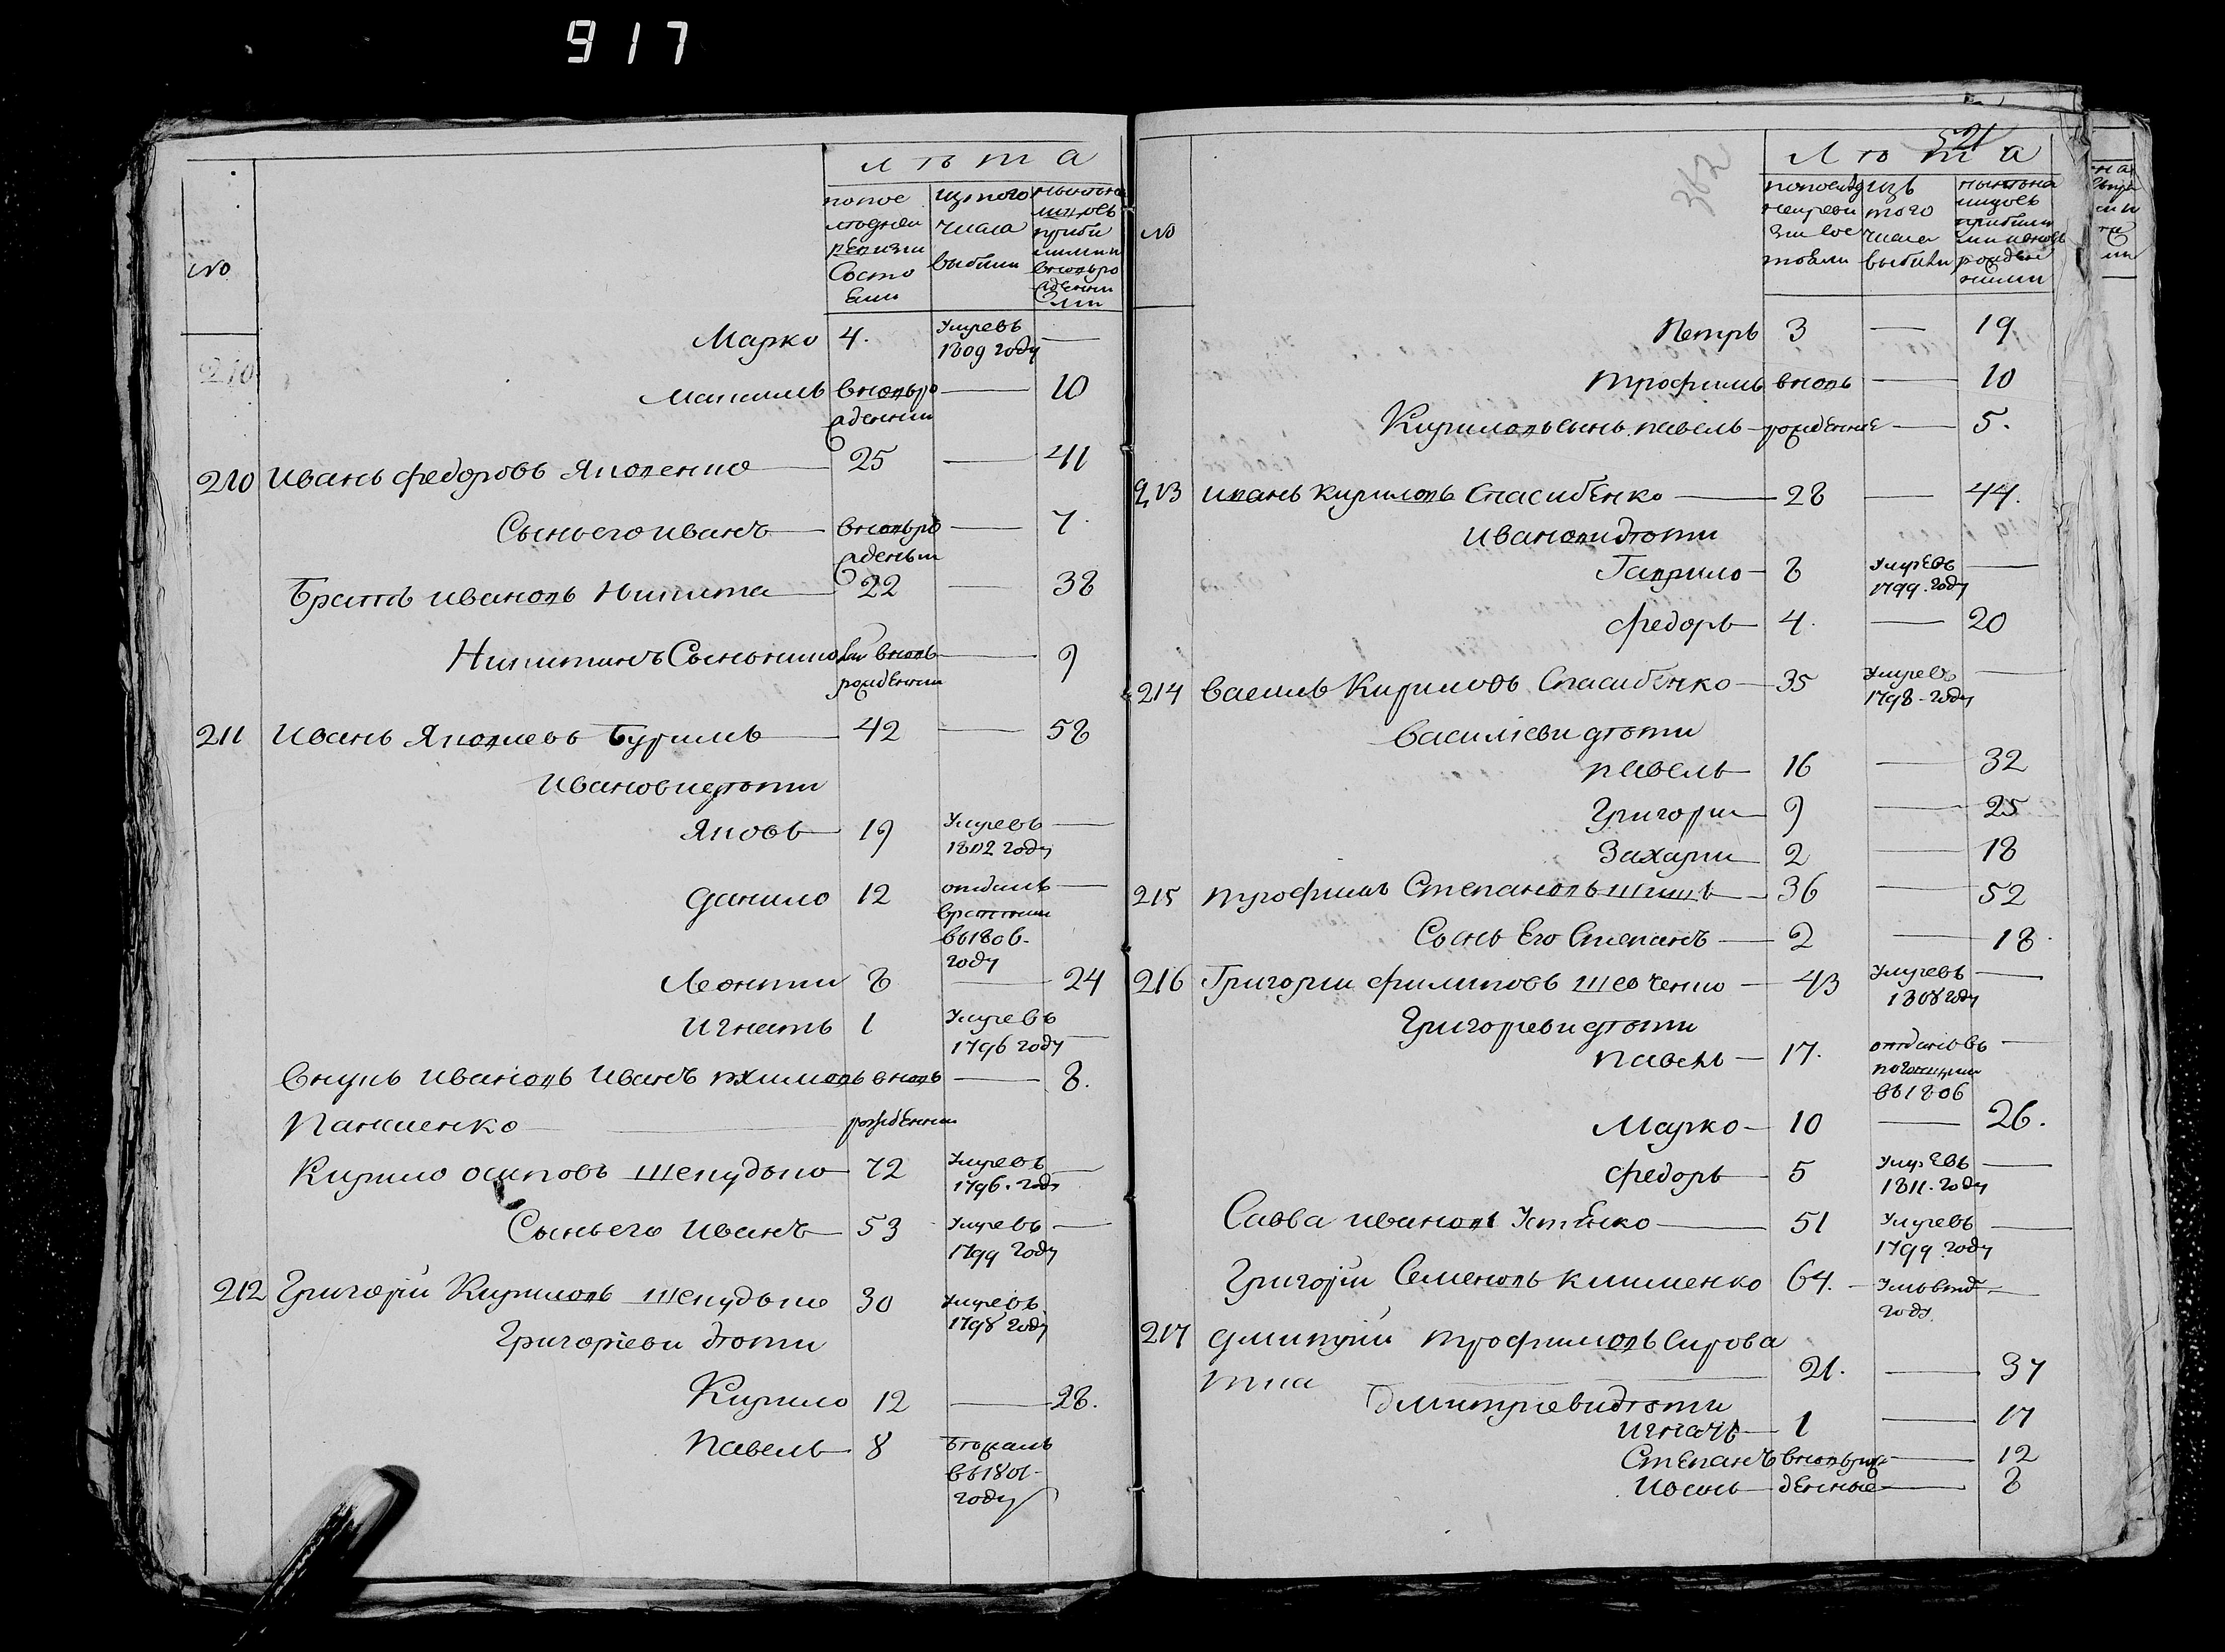 917
Лѣта
№
попос
лѣдней
ревизи
Состо
яли
Исттого
числа
выбили
нынѣна
лицовъ
прибы
лыми и
вновь ро
жденны
ми
Марко 4. умревъ
1809 году —
210
Максимъ вновьро — 10
жденный
210 Иванъ Федоровъ Яковенко — 25 — 41
Сынъ его Иванъ — вновьро — 7.
жденъный
Братъ Ивановъ Никита — 22 — 38
Никитинъ Сынъ вновь — 9
рожденный
211 Иванъ Яковлевъ Буримъ — 42 — 58
Ивановы дѣти
Яковъ — 19 умревъ —
1802 году
Данило 12 отданъ —
въ 1806-
году
Леонтий 8 — 24
Игнатъ 1 умревъ
1796 году —
Внукъ Ивановъ Иванъ вновь — 8.
рожденный
Кирило Осиповъ Шелудько — 72 умревъ —
1796. году
Сынъ его Иванъ — 53 умревъ —
1799 году
212 Григорій Кириловъ Шелудько 30 умревъ
1798 году
Григоріеви дѣти
Кирило 12 — 28.
Павелъ — 8 бѣжалъ
въ 1801-
году
521
362
Лѣта
№
попослѣд
ней реви
зии сос
тояли
изъ
того
числа
выбили
нынѣна
лицовъ
прибыли
ми и вновь
рожден
ными
Петръ 3 — 19
Трофимъ вновь — 10
Кириловъ сынъ Павелъ — рожденние — 5.
213 Иванъ Кириловъ Спасибенко — 28 — 44.
Иванови дѣти
Гаврило — 8 умревъ —
1799. году
Федоръ — 4. — 20
214 Василь Кириловъ Спасибенко — 35 умревъ —
1798 - году
Василіеви дѣти
Павелъ — 16 — 32
Григори — 9 — 25
Захарии — 2 — 18
215 Трофимъ Степановъ — 36 — 52
Сынъ Его Степанъ — 2 — 18.
216 Григории Филиповъ Шевченко — 43 умревъ —
1808 году
Григореви дѣти
Павелъ — 17. отданъ въ —
въ 1806
Марко — 10 — 26.
Федоръ — 5 умревъ —
1811. году
Савва Ивановъ Устенко — 51 умревъ —
1799. году
Григорій Семеновъ Клименко 64. —
году.
217 Дмитрій Трофимовъ Сирова
тка — 21. — 37
Дмитриеви дѣти
Игнатъ — 1 — 17
Степанъ вновьрож — 12
Иванъ — денные — 8